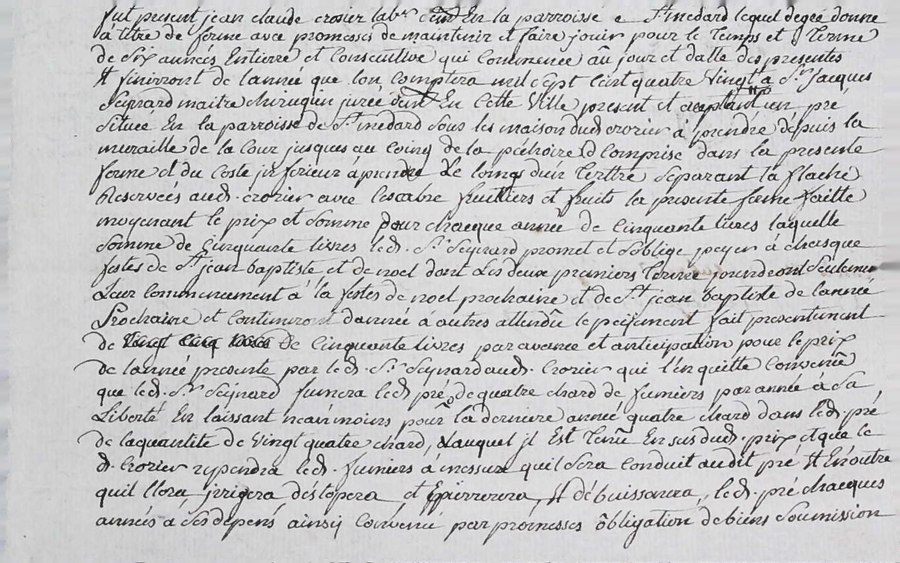 fut présent jean claude crosier labr. demt En la parroisse e St. medard lequel degré donne
à titre de ferme avec promesses de maintenir et faire jouir pour le Temps et Terme
de Six années Entierre et Consecutive qui Commence aû jour et datte des presentes
Et finiront de lannée que lon Comptera mil Sept Cent quatre Vingt a Sr. Jacques
Seynard maitre chirurgien juré demt En Cette Ville present et aceptant un pré
Situé En la parroisse de St. medard Sous les maison dud crosier à prendre depuis la
muraille de la Cour jusques au Coing de la
Comprise dans la presente
ferme et du Coste inferieur à prendre Le long dun Tertre Separant la
Reservées aud. crosier avec les arbre fruittiers et fruits la presente ferme faitte
moyenant le prix et Somme pour chacque année de Cinquante livres laquelle
Somme de Cinquante livres led. Sr. Seynard promet et Soblige peyer à chasque
festes de St. jean baptiste et de noel dont Les deux premiers Terme prendront Seulemt
Leur Commencement à la festes de noel prochaine et de St. jean baptiste de lannée
Prochaine et Continuront dannée à autres attendû le peyement fait presentement
de Cinquante livres par avance et anticipation pour le prix
de lannée presente par led. Sr. Seynard aud. Crosier qui l'en quitte Convenû
que led. Sr. Seynard fumera led. pré de quatre chard de fumiers par année à Sa
Liberté En laissant neanmoins pour la derniere année quatre chard dans led. pré
de la quantité de Vingt quatre chard, auquel il Est Tenû En sus dud. prix et que le
d. Crosier rependra led. fumiers à messure quil Sera Conduit audit pré Et En outre
quil Clora jrrigera destopera et Epierrera, Et débuissonera, led. pré chacques
années à Ses depens ainsy Convenû par promesses obligation de biens Soumission